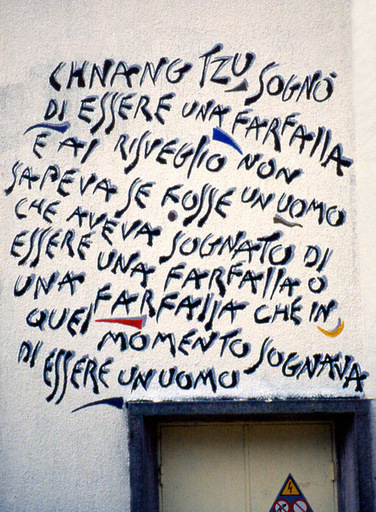 CHNANG TZU SOGNÒ
DI ESSERE UNA FARFALLA
E AL RISVEGLIO NON
SAPEVA SE FOSSE UN UOMO
CHE AVEVA SOGNATO DI
ESSERE UNA FARFALLA O
UNA FARFALLA CHE IN
QUEL MOMENTO SOGNAVA
DI ESSERE UN UOMO